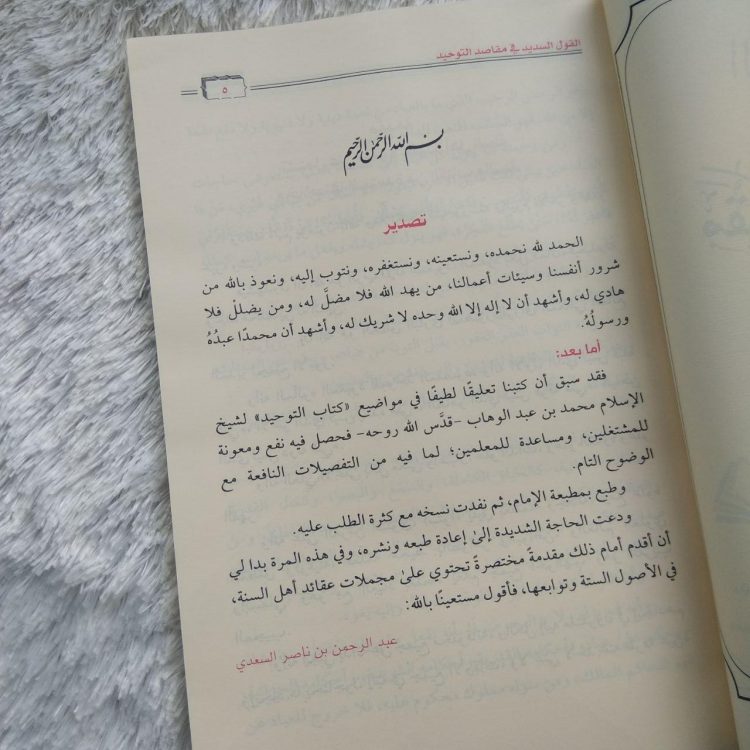 القول السديد في مقاصد التوحيد
٥
بسم الله الرحمن الرحيم
تصدير
الحمد لله نحمده، ونستعينه، ونستغفره، ونتوب إليه، ونعوذ بالله من
شرور أنفسنا وسيئات أعمالنا، من يهد الله فلا مضلَّ له، ومن يضللْ فلا
هادي له، وأشهد أن لا إله إلا الله وحده لا شريك له، وأشهد أن محمدًا عبدُهُ
ورسولُهُ.
أما بعد:
فقد سبق أن كتبنا تعليقًا لطيفًا في مواضيع «كتاب التوحيد» لشيخ
الإسلام محمد بن عبد الوهاب -قدَّس الله روحه- فحصل فيه نفع ومعونة
للمشتغلين، ومساعدة للمعلمين؛ لما فيه من التفصيلات النافعة مع
الوضوح التام.
وطبع بمطبعة الإمام، ثم نفدت نسخه مع كثرة الطلب عليه.
ودعت الحاجة الشديدة إلىٰ إعادة طبعه ونشره، وفي هذه المرة بدا لي
أن أقدم أمام ذلك مقدمةً مختصرةً تحتوي علىٰ مجملات عقائد أهل السنة،
في الأصول الستة وتوابعها، فأقول مستعينًا بالله:
عبد الرحمن بن ناصر السعدي